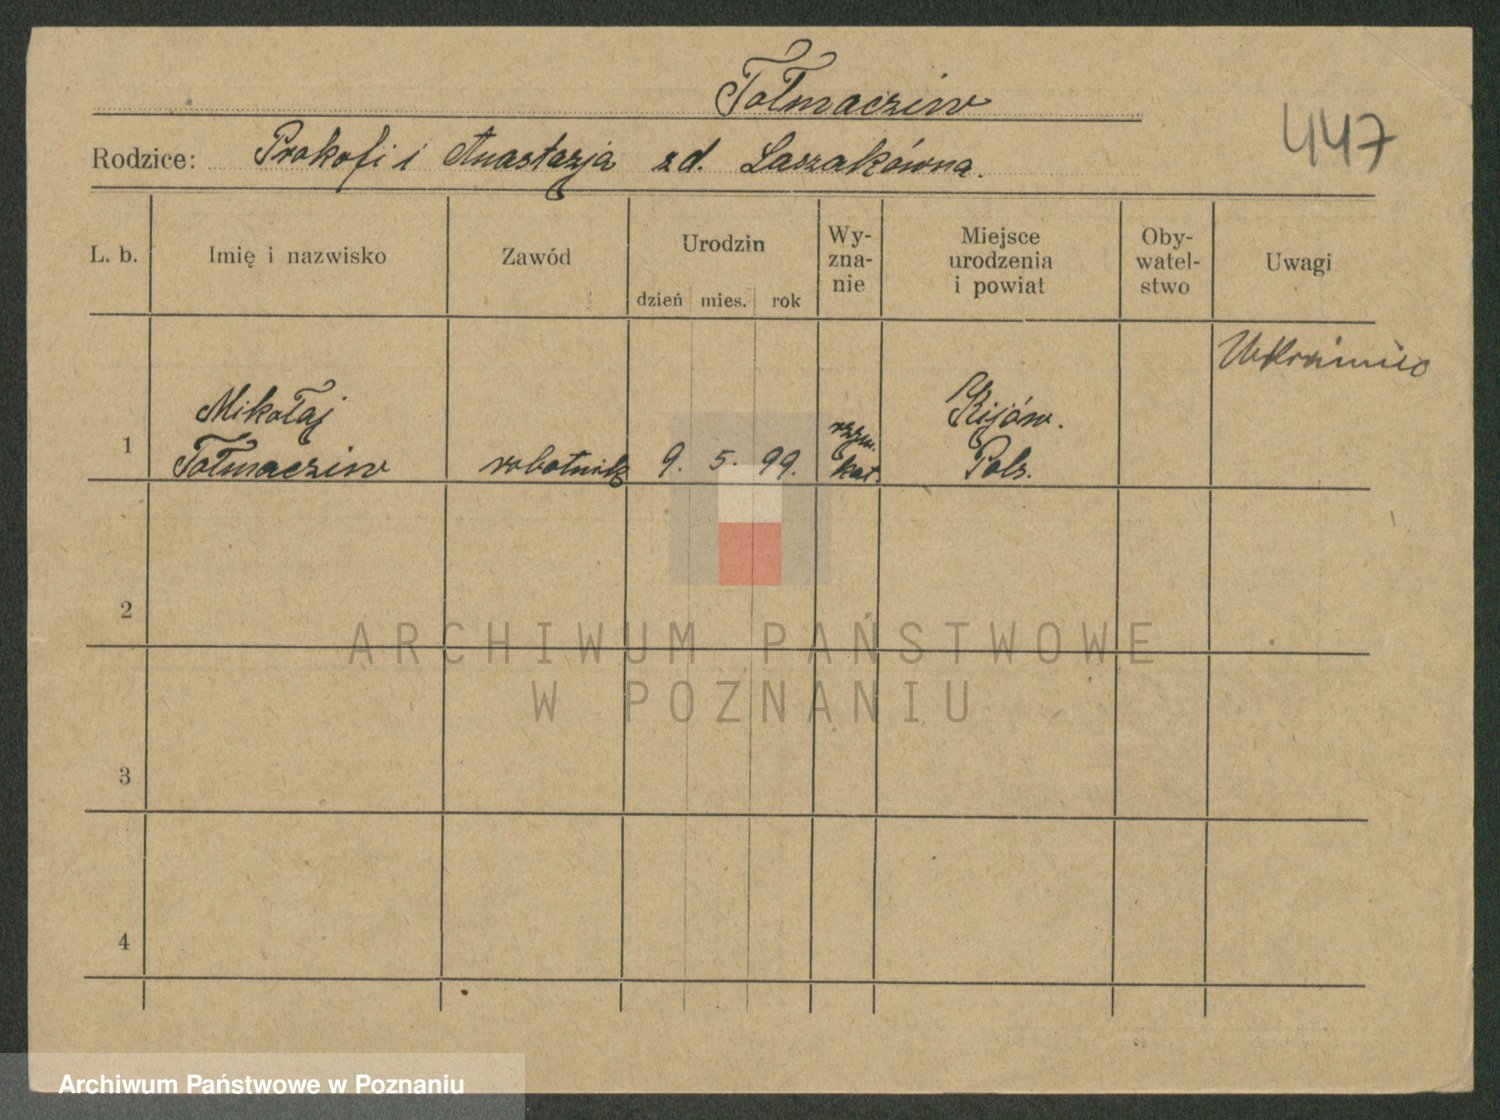 Tołmacziw
447
Rodzice: Prokofi i Anastazja zd. Laszakówna.
L. b. Imię i nazwisko Zawód Urodzin dzień mies. rok Wy-
zna-
nie Miejsce
urodzenia
i powiat Oby-
watel-
stwo Uwagi
Ukrainiec
1 Mikołaj
Tołmacziw robotnik 9. 5. 99. rzym.
kat. Kijów.
Pols.
2
3
4
ARCHIWUM PAŃSTWOWE
W POZNANIU
Archiwum Państwowe w Poznaniu